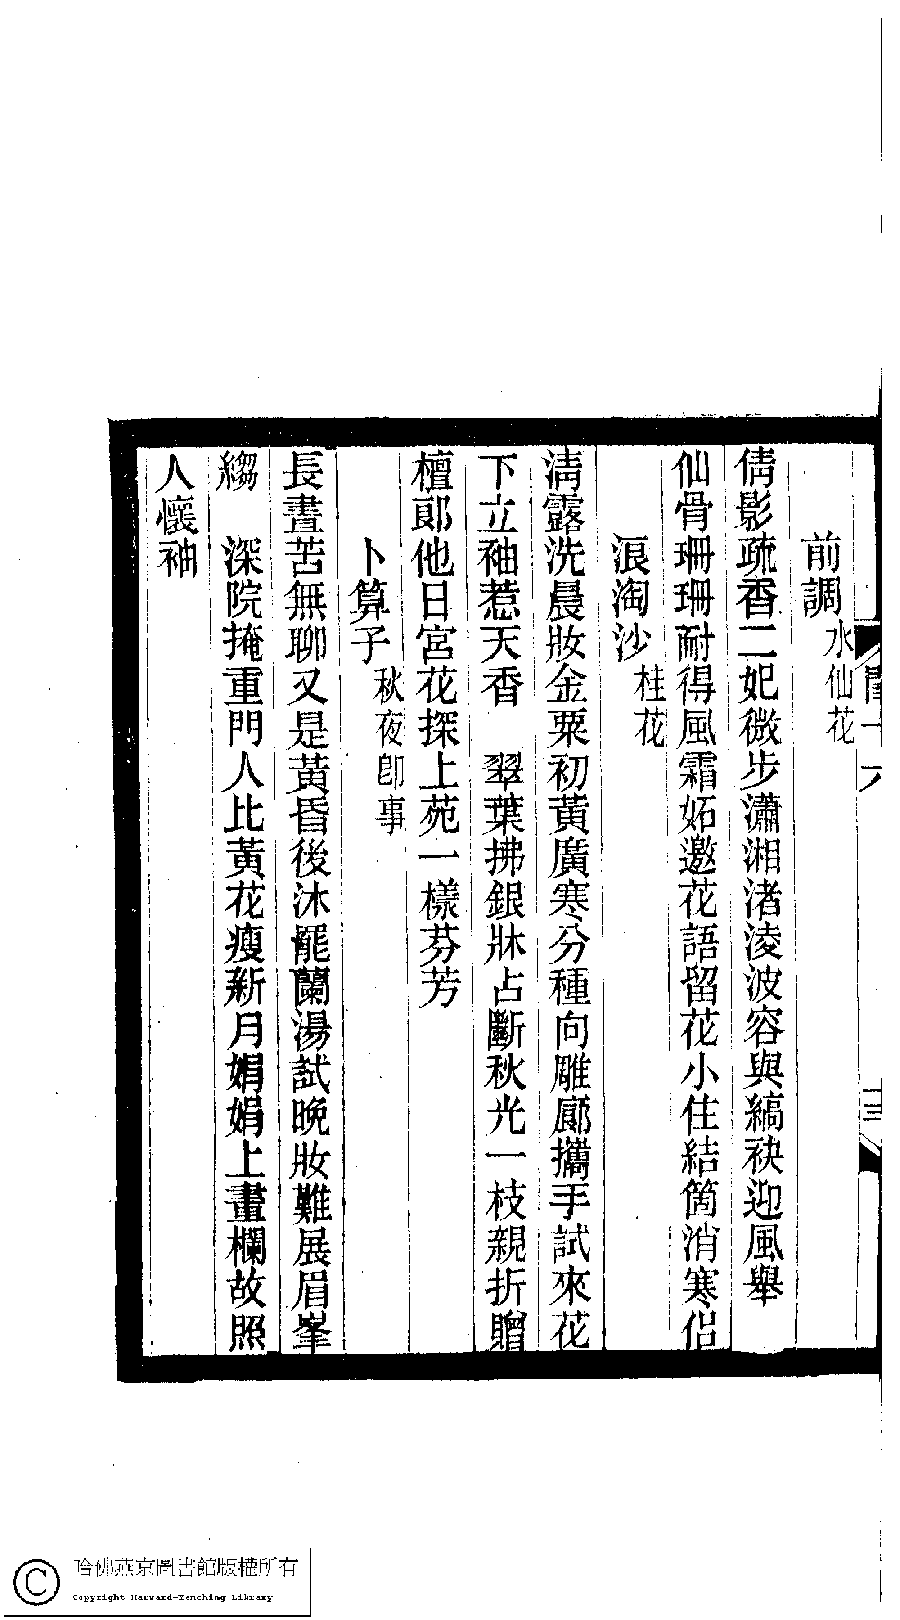 前調 水仙花
倩影疏香二妃微步瀟湘渚淩波容與縞袂迎風舉
仙骨珊珊耐得風霜妬邀花語留花小住結箇消寒侶
浪淘沙 桂花
淸露洗晨妝金粟初黃廣寒分種向雕廊攜手試來花
下立袖惹天香　翠葉拂銀牀占斷秋光一枝親折贈
檀郞他日宮花探上苑一樣芬芳
卜算子 秋夜卽事
長晝苦無聊又是黃昏後沐罷蘭湯試晚妝難展眉峯
縐　深院掩重門人比黃花瘦新月娟娟上畫欄故照
人懷袖
哈佛燕京圖書館版權所有
Copyright Harvard-Yenching Library